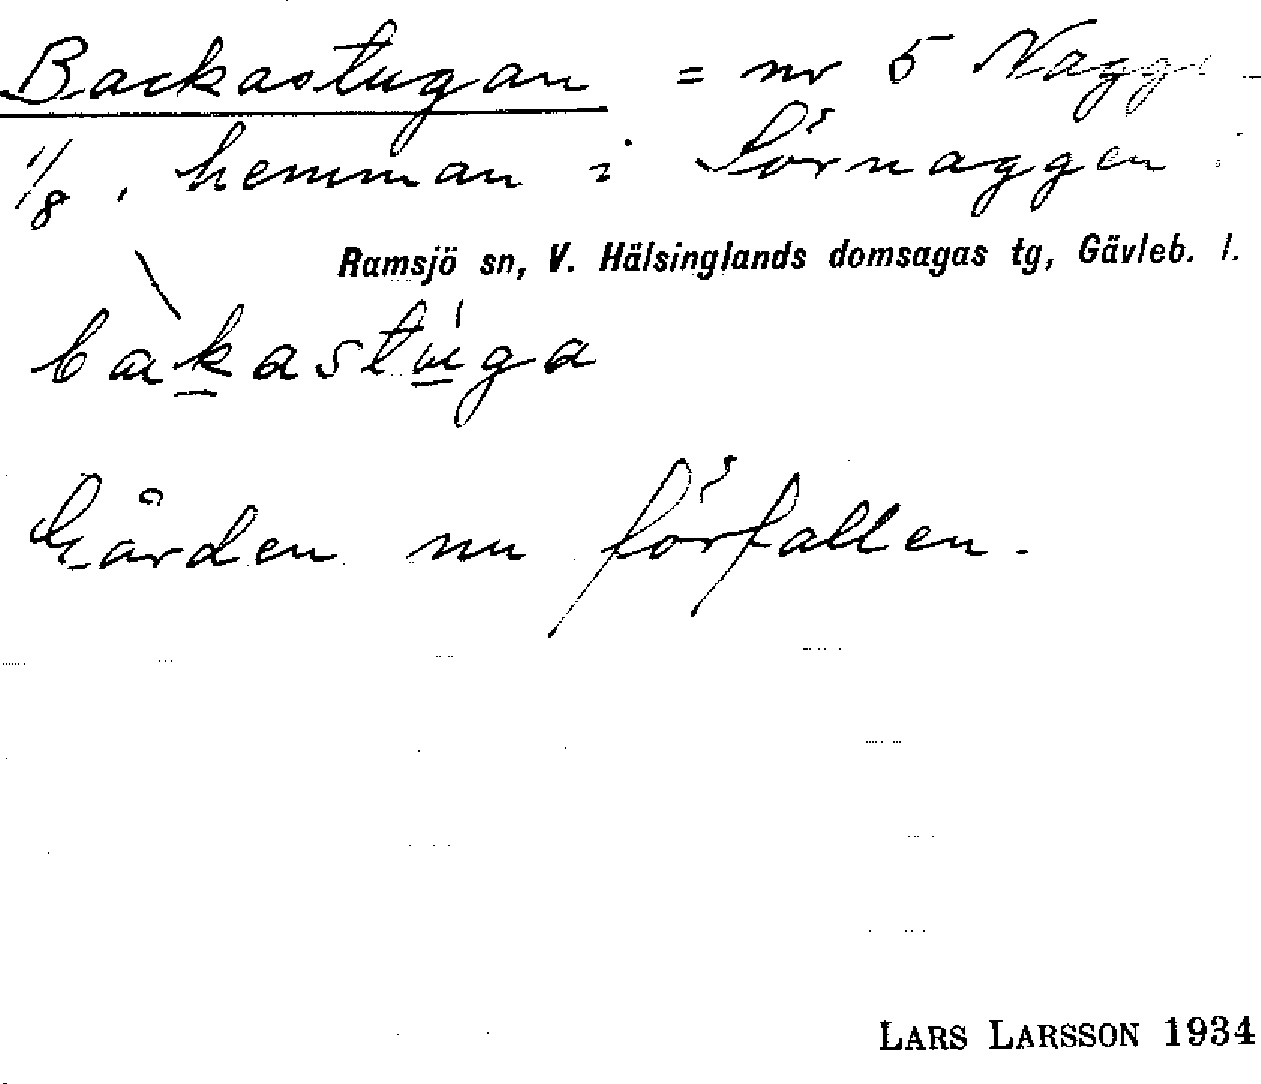 Backastugan = nr 5 Nagge
1/8, hemman i Sörnaggen
Ramsjö sn, V. Hälsinglands domsagas tg, Gävleb. l.
bakastuga
Gården nu förfallen.
LARS LARSSON 1934